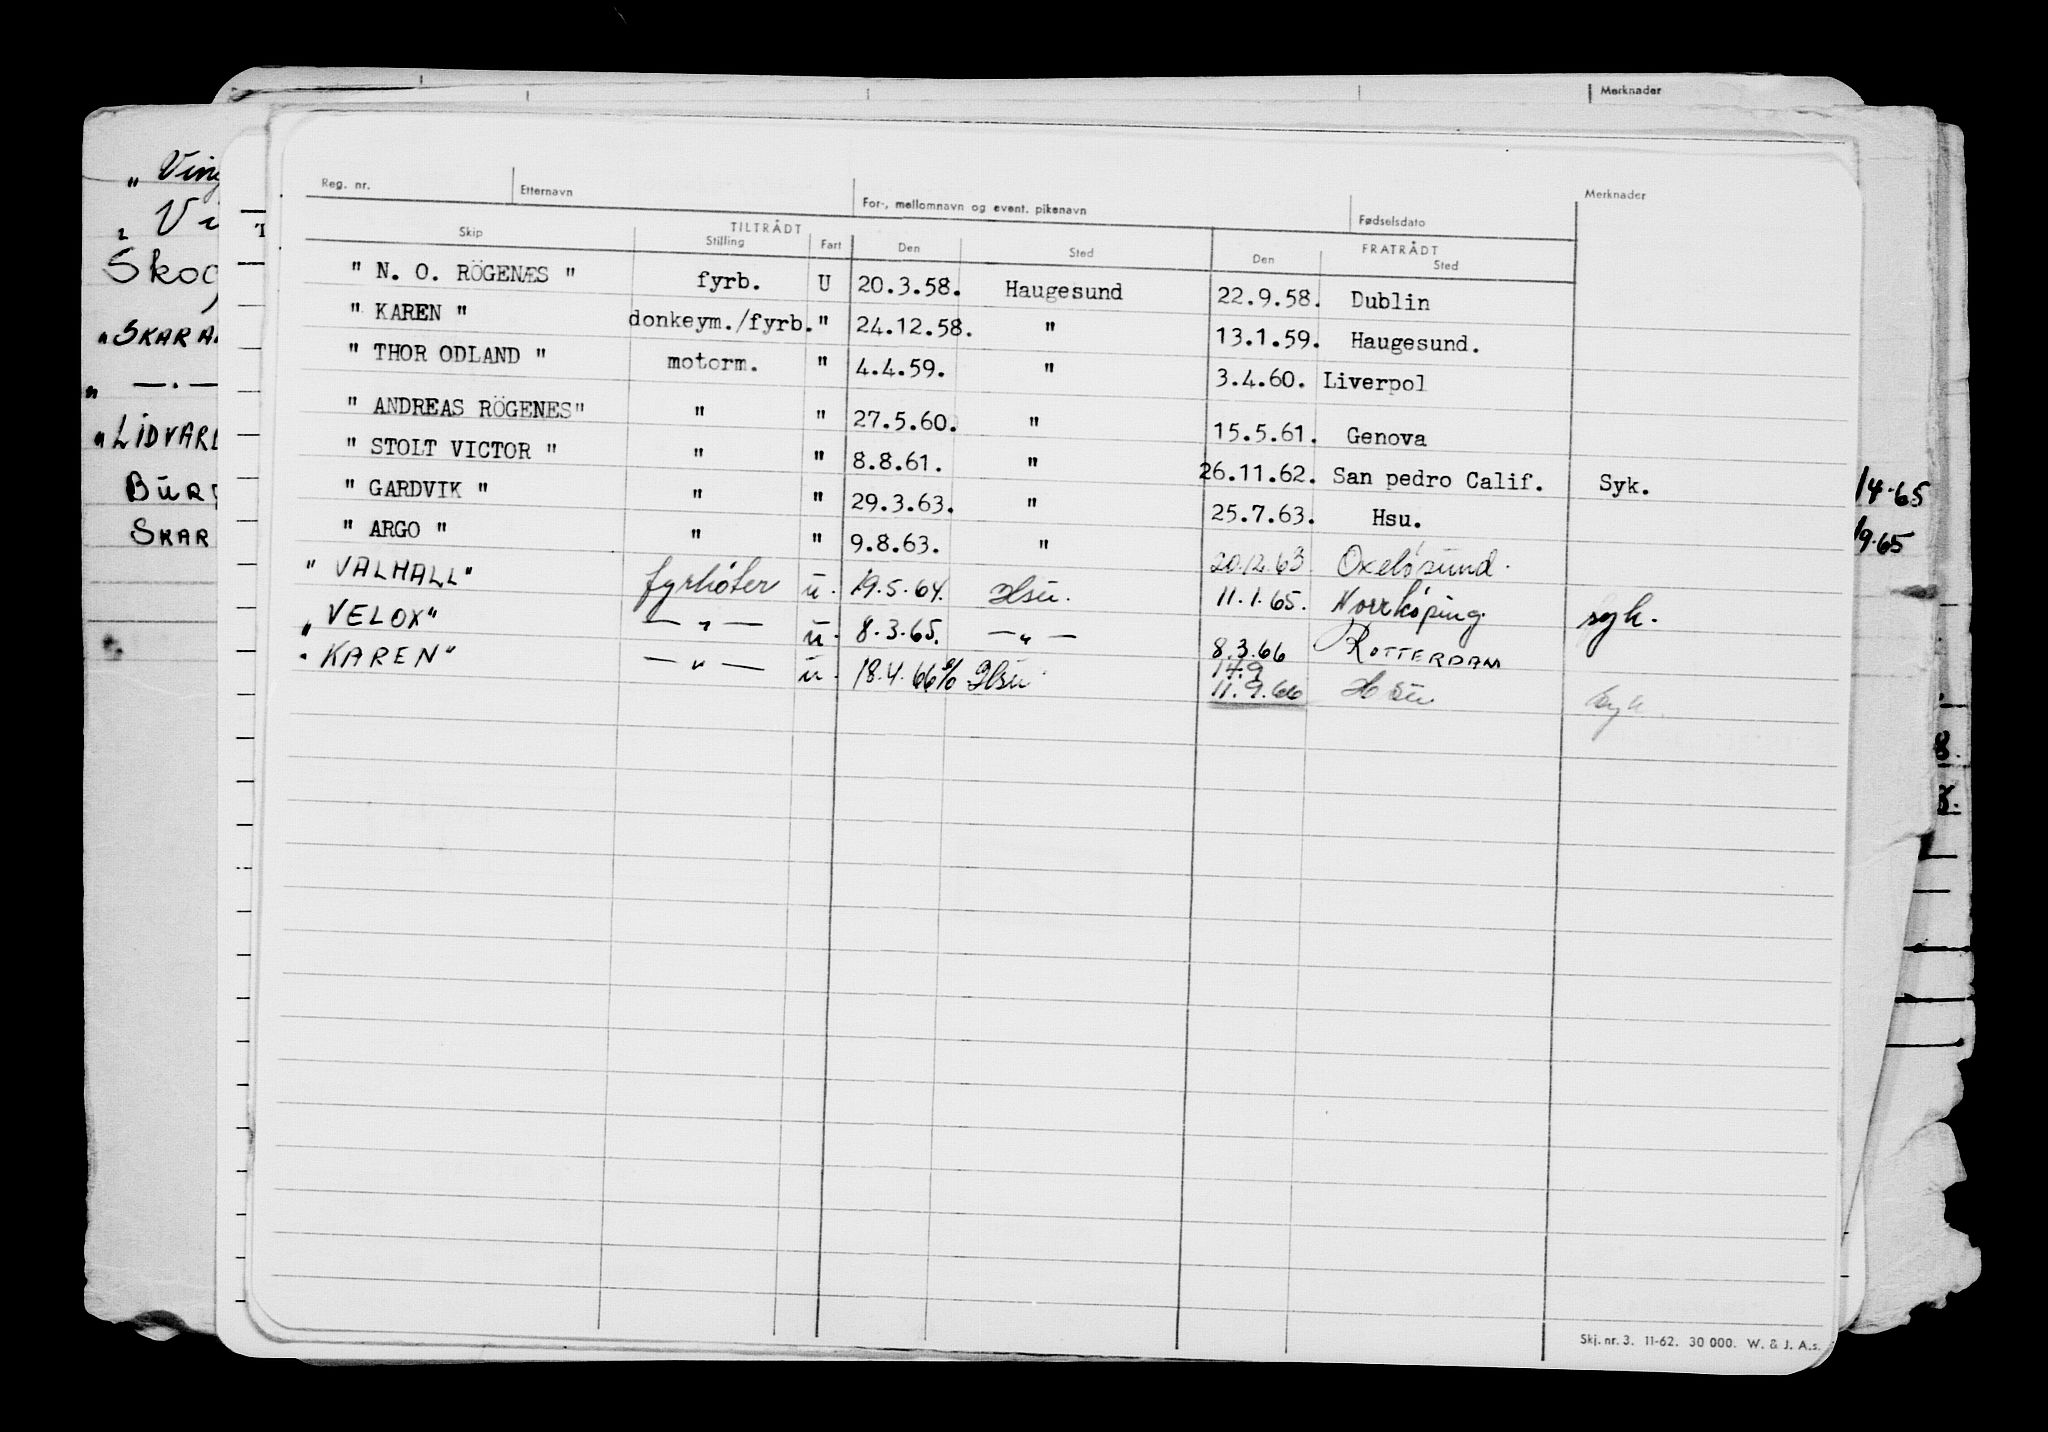 Merknader
Reg. nr. Etternavn For-, mellomnavn og event. pikenavn Fødselsdato Merknader
TILTRÅDT FRATRÅDT
Skip Stilling Fart Den Sted Den Sted
" N. O. RÖGENÆS " fyrb. U 20.3.58. Haugesund 22.9.58. Dublin
" KAREN " donkeym./fyrb. " 24.12.58. " 13.1.59. Haugesund.
" THOR ODLAND " motorm. " 4.4.59. " 3.4.60. Liverpol
" ANDREAS RÖGENES" " " 27.5.60. " 15.5.61. Genova
" STOLT VICTOR " " " 8.8.61. " 26.11.62. San pedro Calif. Syk.
" GARDVIK " " " 29.3.63. " 25.7.63. Hsu.
" ARGO " " " 9.8.63. " 20.12.63 Oxelösund.
" VALHALL" fyrbøter u. 19.5.64. Hsu. 11.1.65. Norrköping. syk.
" VELOX" — " — u. 8.3.65. — " — 8.3.66 ROTTERDAM
" KAREN" — " — u. 18.4.66 Hsu. 14.9 11.9.66 Hsu syk.
Skj. nr. 3. 11-62. 30 000. W. & J. A.s.
" Ving
" Vi
Skog
"SKARA
" —.—
"LIDVARD
BURG
SKAR
14.65
19.65
8.